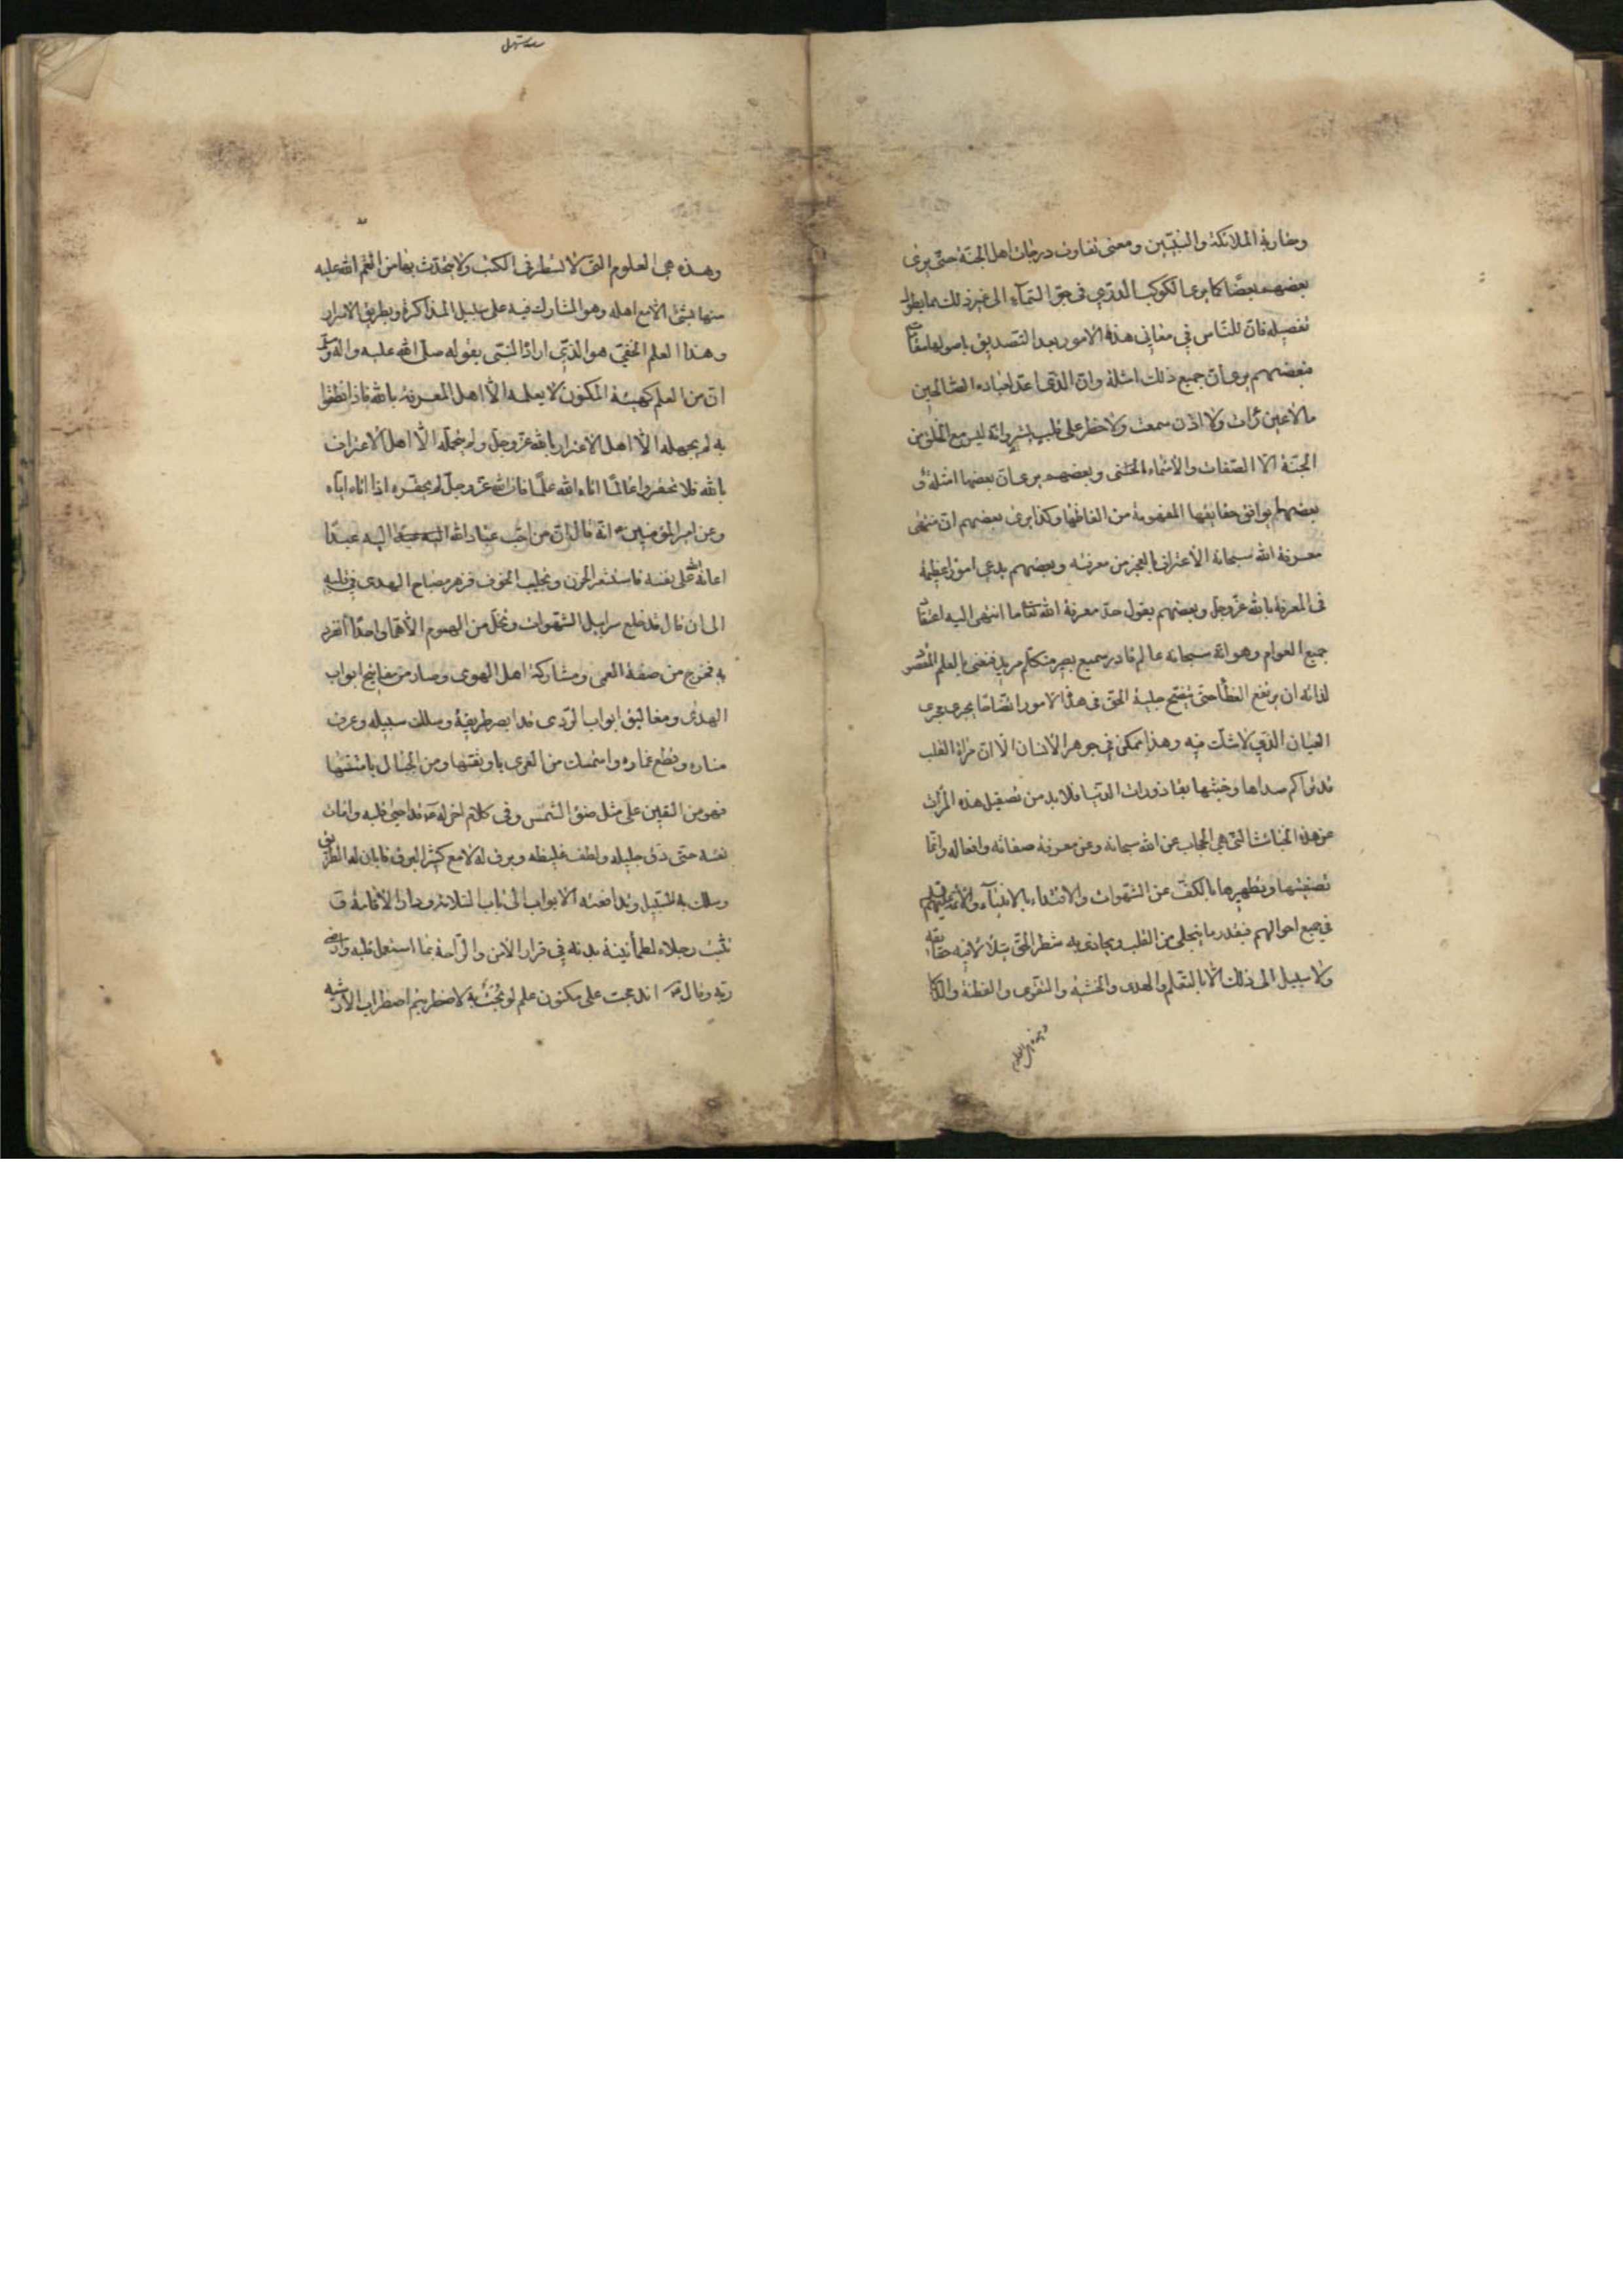 ومقارنة الملائكة والنبيّين ومعنى تفاوت درجات اهل الجنّة حتّى يرى
بعضهم بعضًا كما يرى الكوكب الدرّي في جوّ السّماء الى غير ذلك مما يطول
تفصيله فانّ للنّاس في معاني هذه الامور بعد التّصديق باصولها مقامات
فبعضهم يرى انّ جميع ذلك امثلة وانّ الّذي اعدّ لعباده الصّالحين
ما لا عين رأت ولا اذن سمعت ولا خطر على قلب بشر وانّه ليس مع الخلق من
الجنّة الّا الصّفات والاسماء الحسنى وبعضهم يرى انّ بعضها امثلة و
بعضها يوافق حقايقها المفهومة من الفاظها وكذا يرى بعضهم انّ منتهى
معرفة الله سبحانه الاعتراف بالعجز من معرفته وبعضهم يدعي امورًا عظيمة
في المعرفة بالله عزّ وجلّ وبعضهم يقول حدّ معرفة الله تعالى ما انتهى اليه اعتقاد
جميع العوام وهو انّه سبحانه عالم قادر سميع بصير متكلّم مريد فنعني بالعلم المقصود
لذاته ان يرتفع الغطأ حتّى يتّضح جلية الحق في هذه الامور اتّضاحًا يجري مجرى
العيان الّذي لا يشكّ فيه وهذا ممكن في جوهر الانسان الّا انّ مرآة القلب
قد تراكم صداها وخبثها بقاذورات الدنيا فلا بد من تصقيل هذه المرآت
عن هذه الخبائث الّتي هي الحجاب عن الله سبحانه وعن معرفة صفاته وافعاله وانّما
تصفيتها وتطهيرها بالكفّ عن الشّهوات والاقتداء بالانبيآء والائمة عليهم
في جميع احوالهم فبقدر ما ينجلي من القلب ويحاذي به شطر الحق يتلألأ فيه حقايقه
ولا سبيل الى ذلك الّا بالتعلم والهدى والخشية والتقوى والفطنة والذكاء
وهذه هي العلوم
وهذه هي العلوم الّتي لا تسطر في الكتب ولا يتحدّث بها من انعم الله عليه
منها بشئ الّا مع اهله وهو المشارك فيه على سبيل المذاكرة وبطريق الاسرار
وهذا العلم الخفيّ هو الّذي اراد النّبيّ بقوله صلّى الله عليه وآله وسلم
انّ من العلم كهيئة المكنون لا يعلمه الّا اهل المعرفة بالله فاذا نطقوا
به لم يجهله الّا اهل الاغترار بالله عزّ وجلّ ولم يحمله الّا اهل الاعتراف
بالله فلا تحقروا عالمًا اتاه الله علمًا فان الله عزّ وجلّ لم يحقّره اذا اتاه ايّاه
وعن امير المؤمنين انّه قال انّ من احبّ عباد الله اليه عبدًا
اعانه الله على نفسه فاستشعر الحزن وتجلبب الخوف فزهر مصباح الهدى في قلبه
الى ان قال قد خلع سرابيل الشّهوات وتخلّى من الهموم الّا همًا واحدًا انفرد
به فخرج من صفة العمى ومشاركة اهل الهوى وصار من مفاتيح ابواب
الهدى ومغاليق ابواب الرّدى قد ابصر طريقه وسلك سبيله وعرف
مناره وقطع غماره واستمسك من العرى باوثقها ومن الحبال بامتنها
فهو من اليقين على مثل ضوء الشّمس وفي كلام اخر له قد احيى قلبه وامات
نفسه حتى دقّ جليله ولطف غليظه وبرق له لامع كثير البرق فابان له الطريق
وسلك به السّبيل وتدافعته الابواب الى باب السّلامة ودار الاقامة و
ثبتت رجلاه لطمأنينة بدنه في قرار الامن والرّاحة بما استعمل قلبه وارضى
ربّه وقال اندمجت على مكنون علم لو بحت به لاضطربتم اضطراب الارشية